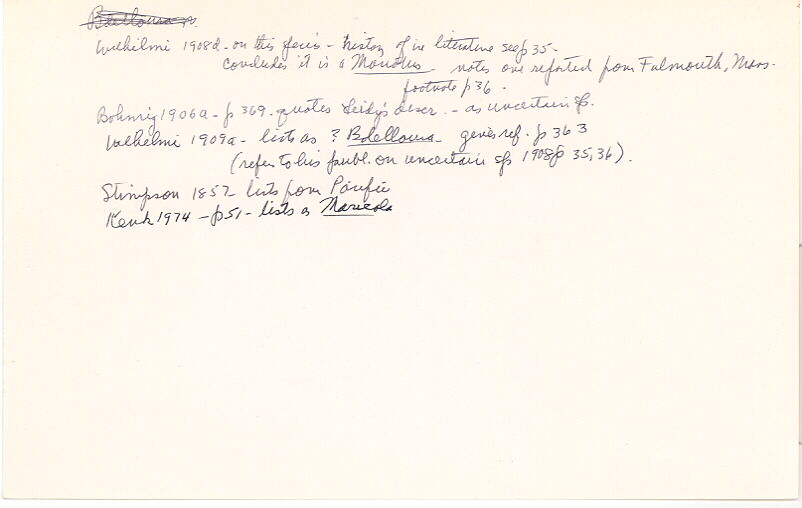 Bdelloura
Wilhelmi 1908d - on this species - history of in literature see p 35 -
concludes it is a Monotus notes one reported from Falmouth, Mass.
footnote p 36.
Bohmig 1906a - p 369. quotes Leidy's descr. - as uncertain sp.
Wilhelmi 1909a - lists as ? Bdelloura gives ref. p 363
(refer to his publ. on uncertain sp 1908 p 35, 36).
Stimpson 1857 lists from Pacific
Kenk 1974 - p 51 - lists as Maricola